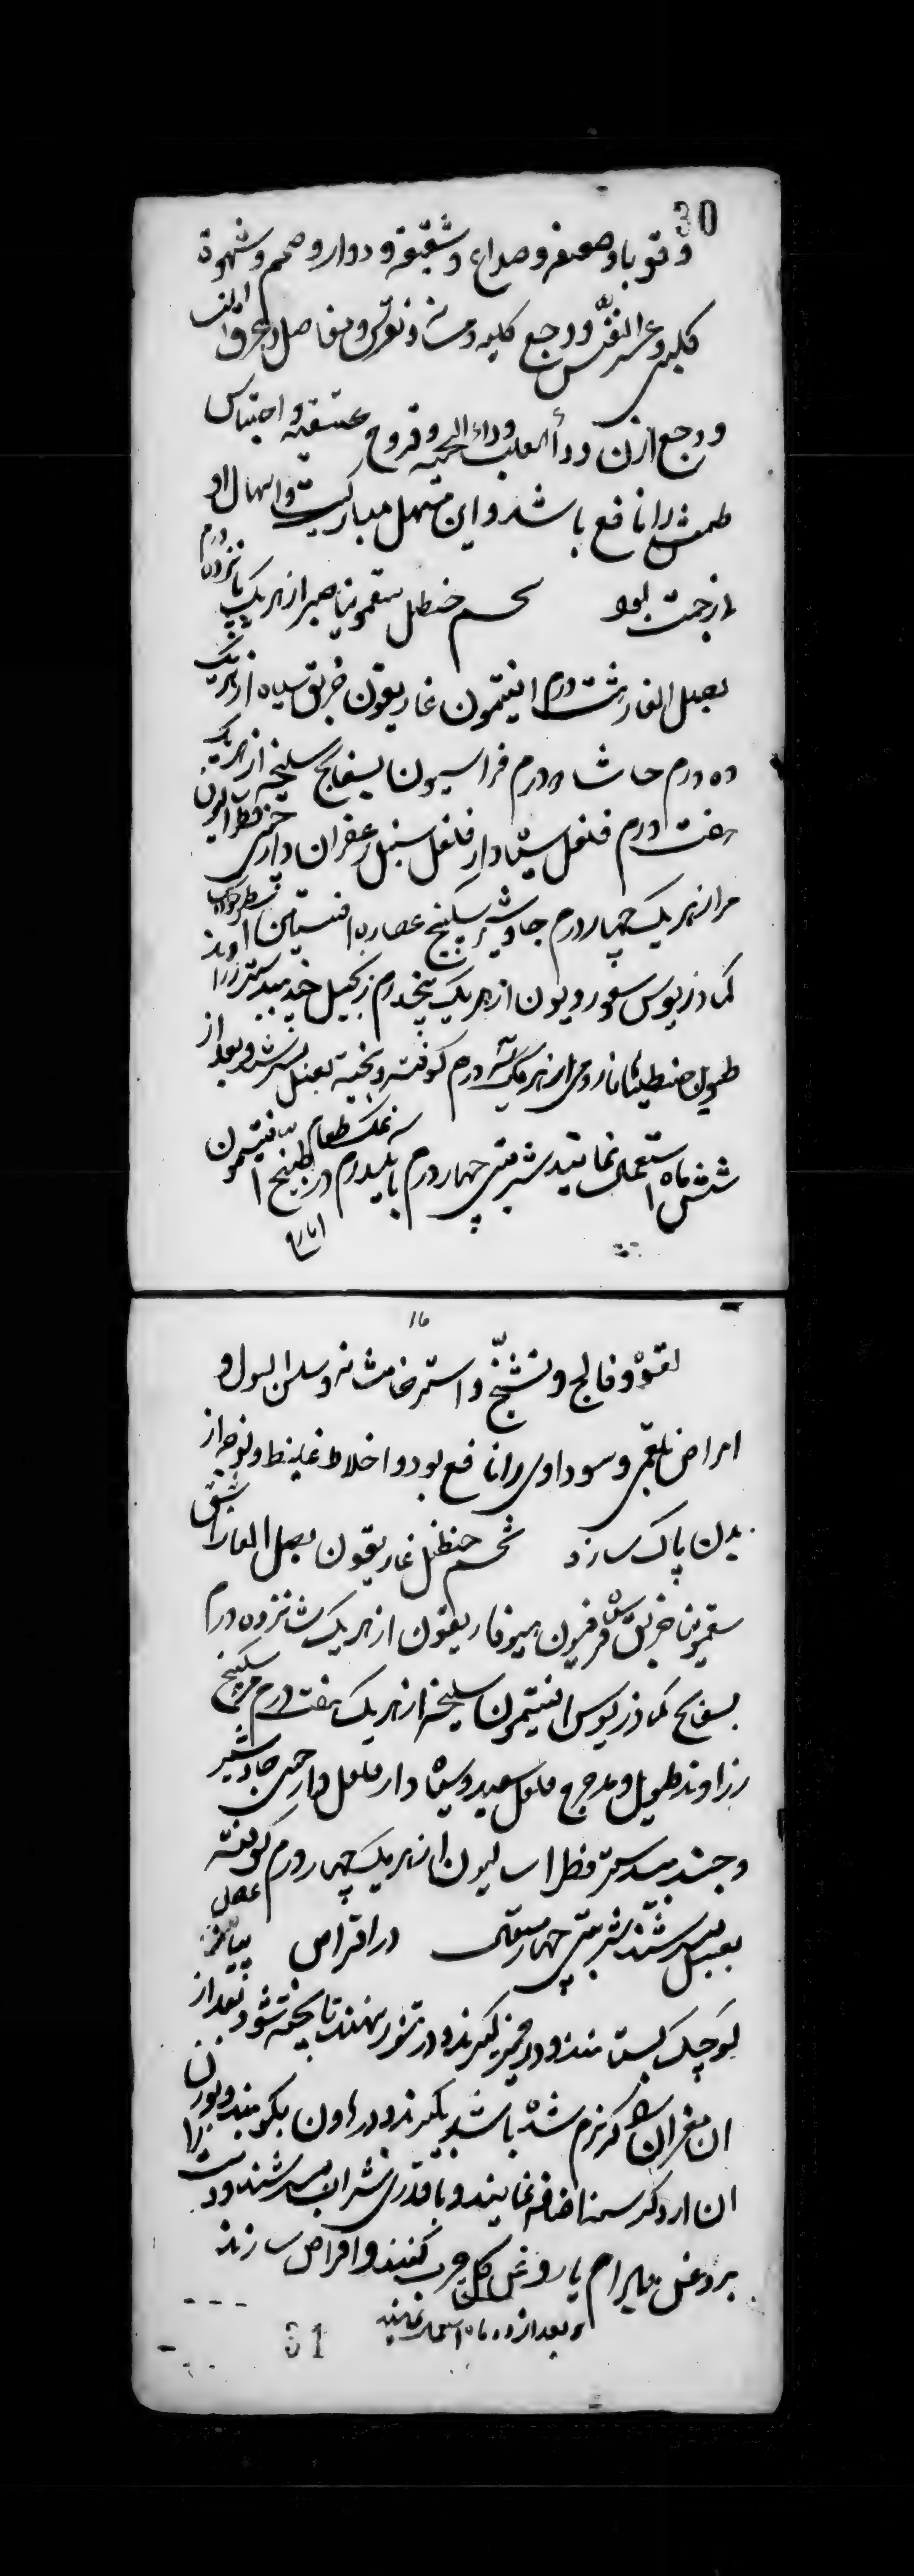 30
و قوبا و صعفه و صداع و شقیقه و دوار و صمم و شهوة
کلبی و عسر النفس و وجع کلیه و مثانه و نقرس و مفاصل و عرق النسا
و وجع اذن و داء الثعلب و داء الحیه و قروح عتیقه و احتباس
طمث را نافع باشد و این مسهل مبارکیست و اسهال او
بود شحم حنظل سقمونیا صبر از هر یک پانزده درم
بصل الفار هشت درم افیتمون غاریقون خربق سیاه از هر یک
ده درم حاشا درم فراسیون بسفایج سلیخه از هر یک
هفت درم فلفل سیاه دار فلفل سنبل زعفران دارچینی فطراسالیون
مر از هر یک چهار درم جاوشیر سکبینج عصاره افسنتین
کمادریوس از هر یک پنجدرم زنجبیل جندبیدستر زراوند
طویل جنطیانا رومی از هر یک سه درم کوفته و بیخته بعسل بسرشند و بعد از
شش ماه استعمال نمایند شربتی چهار درم با یکدرم نمک طعام در طبیخ افیتمون
16
لقوه و فالج و تشنج و استرخا مثانه و سلس البول و
امراض بلغمی و سوداوی را نافع بود و اخلاط غلیظ و لزجه از
بدن پاک سازد شحم حنظل غاریقون بصل الفار اشق
سقمونیا خربق سیاه فرفیون هیوفاریقون از هر یک شانزده درم
بسفایج کمادریوس افیتمون سلیخه از هر یک هفت درم مر سکبینج
زراوند طویل و مدحرج فلفل سفید و سیاه دار فلفل دارچینی جاوشیر
و جندبیدستر فطراسالیون از هر یک چهار درم کوفته
بعسل بسرشند شربتی چهار مثقال در اقراص عنصل پیاز
کوچک بستانند و در خمیر گیرند و در تنور نهند تا پخته شود و بعد از
ان مغز ان را که نرم شده باشد بگیرند و در هاون بکوبند و بوزن
ان ارد کرسنه اضافه نمایند و با قدری شراب بسرشند و دست را
بروغن بلسان یا روغن گل چرب کنند و اقراص سازند
و بعد از دو ماه استعمال نمایند
31